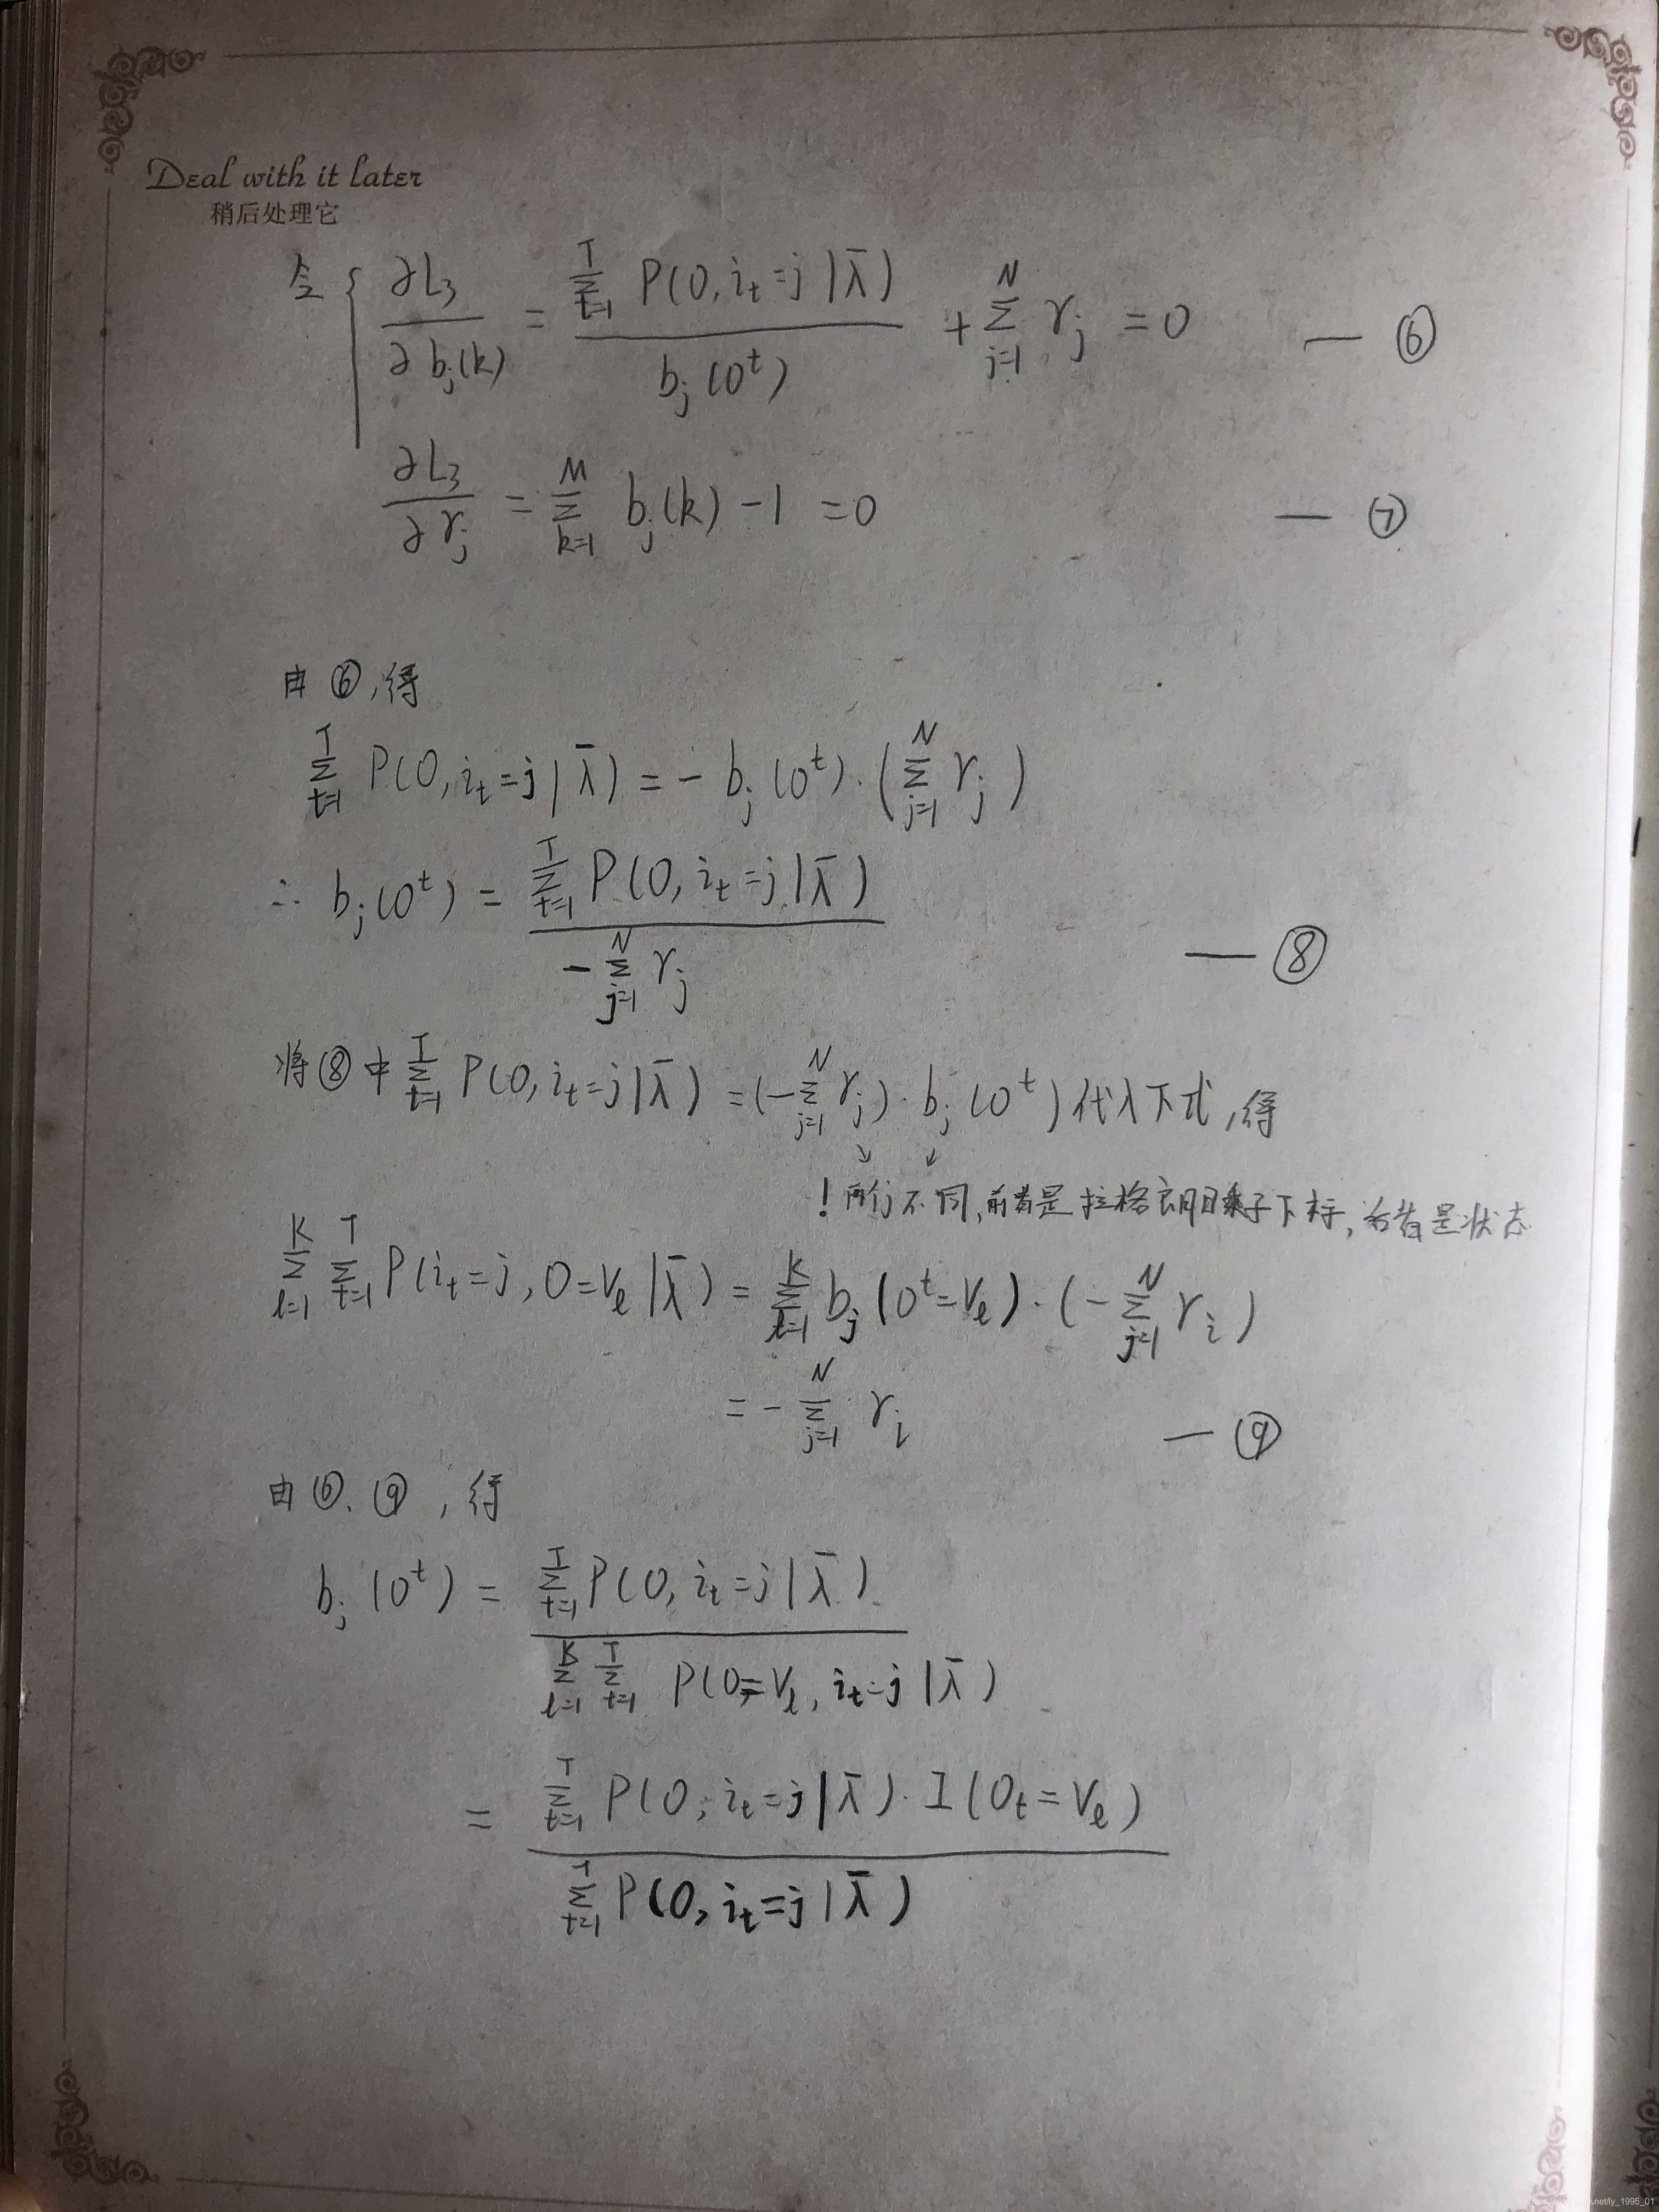 Deal with it later
稍后处理它
令 { ∂L₃/∂b_j(k) = Σ_{t=1}^{T} P(O, i_t=j|λ̄) / b_j(o^t) + Σ_{j=1}^{N} γ_j = 0 — ⑥
∂L₃/∂γ_j = Σ_{k=1}^{M} b_j(k) - 1 = 0 — ⑦
由⑥,得
Σ_{t=1}^{T} P(O, i_t=j|λ̄) = - b_j(o^t)·(Σ_{j=1}^{N} γ_j)
∴ b_j(o^t) = Σ_{t=1}^{T} P(O, i_t=j|λ̄) / -Σ_{j=1}^{N} γ_j — ⑧
将⑧中 Σ_{t=1}^{T} P(O, i_t=j|λ̄) = (-Σ_{j=1}^{N} γ_j)·b_j(o^t) 代入下式,得
↘ ↙
! 两个j不同,前者是拉格朗日乘子下标,后者是状态
Σ_{l=1}^{K} Σ_{t=1}^{T} P(i_t=j, O=V_l|λ̄) = Σ_{l=1}^{K} b_j(o^t=V_l)·(-Σ_{j=1}^{N} γ_i)
= -Σ_{j=1}^{N} γ_i — ⑨
由⑥、⑨,得
b_j(o^t) = Σ_{t=1}^{T} P(O, i_t=j|λ̄) / Σ_{l=1}^{K} Σ_{t=1}^{T} P(O=V_l, i_t=j|λ̄)
= Σ_{t=1}^{T} P(O, i_t=j|λ̄)·I(O_t=V_l) / Σ_{t=1}^{T} P(O, i_t=j|λ̄)